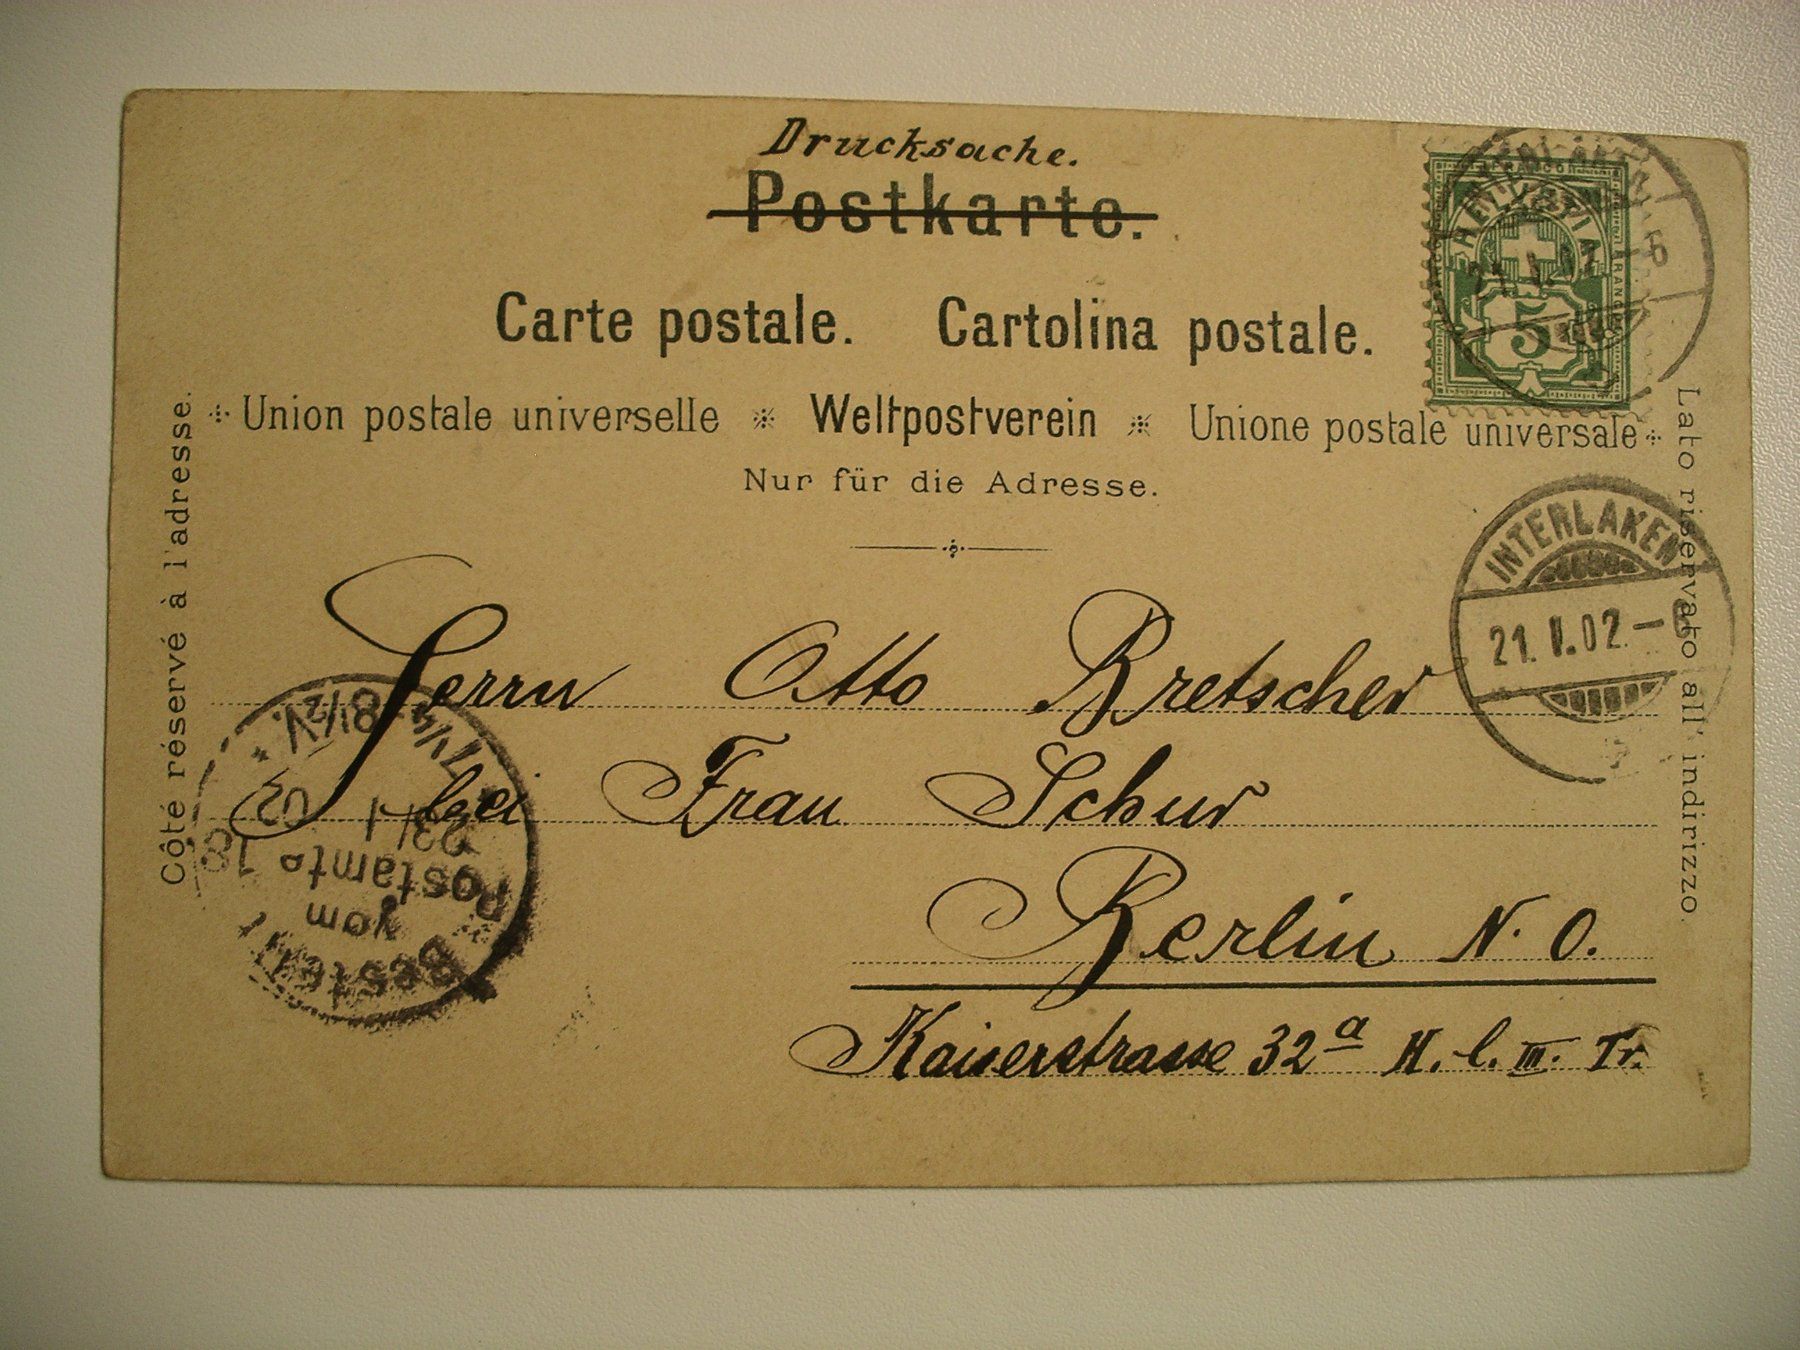 Drucksache.
Postkarte.
Carte postale. Cartolina postale.
Union postale universelle Weltpostverein Unione postale universale
Nur für die Adresse.
Côté réservé à l'adresse.
Lato riservato all' indirizzo.
HELVETIA
FRANCO
5
INTERLAKEN
21. I. 02.
Herrn Otto Bretscher
bei Frau Schur
Berlin N. O.
Kaiserstrasse 32a H. l. III. Tr.
Bestellt
vom
Postamte 18
23/1 02